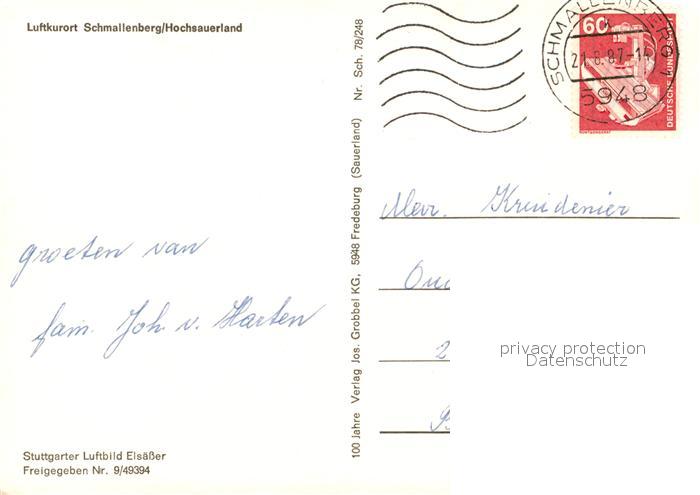 Luftkurort Schmallenberg/Hochsauerland
groeten van
fam. Joh. v. Harten
Stuttgarter Luftbild Elsäßer
Freigegeben Nr. 9/49394
100 Jahre Verlag Jos. Grobbel KG, 5948 Fredeburg (Sauerland) Nr. Sch. 78/248
SCHMALLENBERG
21.8.87-14
5948
60
DEUTSCHE BUNDESPOST
RÖNTGENGERÄT
Mevr. Kruidenier
Oud
2
privacy protection
Datenschutz